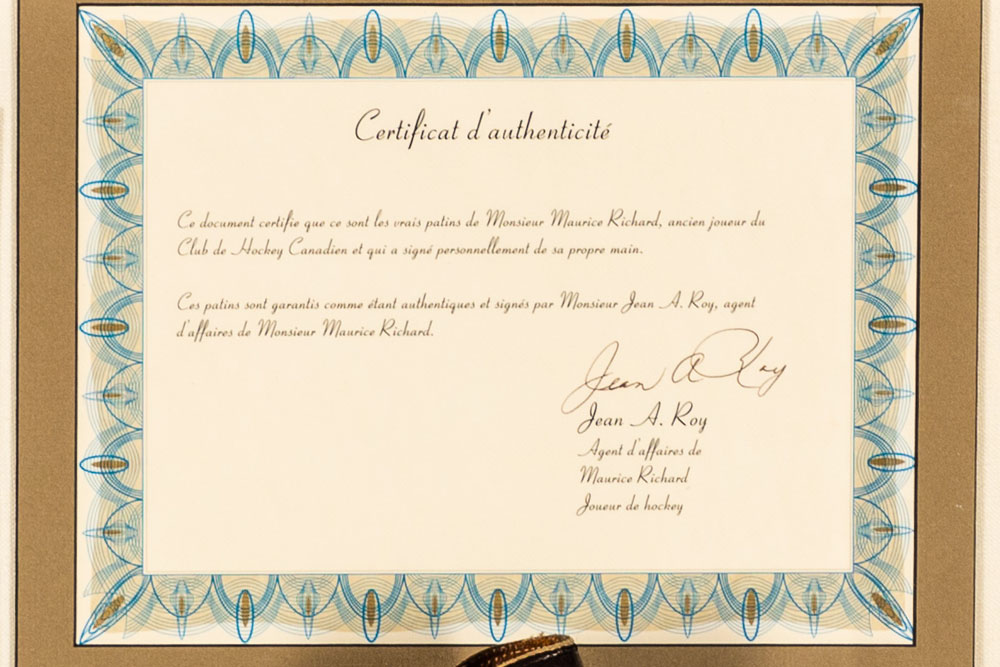 Certificat d'authenticité
Ce document certifie que ce sont les vrais patins de Monsieur Maurice Richard, ancien joueur du
Club de Hockey Canadien et qui a signé personnellement de sa propre main.
Ces patins sont garantis comme étant authentiques et signés par Monsieur Jean A. Roy, agent
d'affaires de Monsieur Maurice Richard.
Jean A Roy
Jean A. Roy
Agent d'affaires de
Maurice Richard
Joueur de hockey